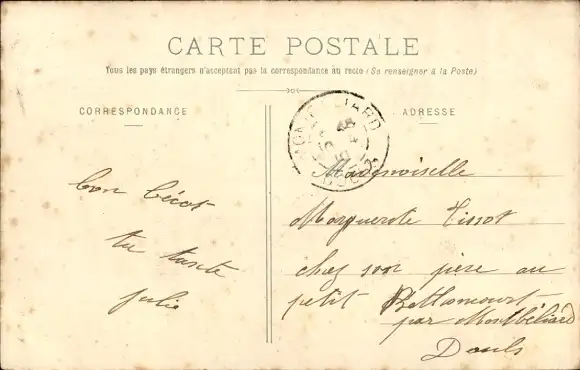 CARTE POSTALE
Tous les pays étrangers n'acceptent pas la correspondance au recto (Se renseigner à la Poste)
CORRESPONDANCE
ADRESSE
MONTBÉLIARD
DOUBS
bon bécot
ta tante
Julie
Mademoiselle
Marguerite Tissot
chez son père au
petit Bethoncourt
par Montbéliard
Doubs